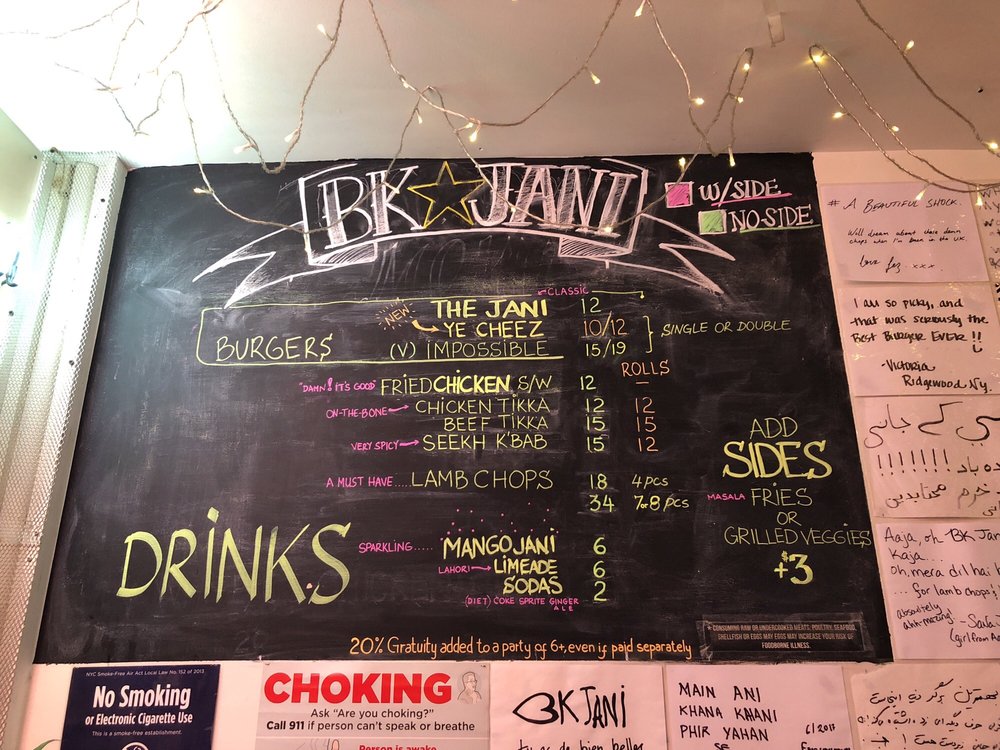 BK JANI
W/SIDE
NO-SIDE
CLASSIC
THE JANI 12
NEW YE CHEEZ 10/12
SINGLE OR DOUBLE
BURGER$
(V) IMPOSSIBLE 15/19
ROLLS
"DAMN! IT'S GOOD" FRIED CHICKEN S/W 12
ON-THE-BONE CHICKEN TIKKA 12 12
BEEF TIKKA 15 15
VERY SPICY SEEKH K'BAB 15 12
A MUST HAVE..... LAMB CHOPS 18 4 PCS
34 7or8 PCS
ADD
SIDES
MASALA FRIES
OR
GRILLED VEGGIES
$
+3
DRINKS
SPARKLING..... MANGO JANI 6
LAHORI LIMEADE 6
SODAS 2
(DIET) COKE SPRITE GINGER
ALE
* CONSUMING RAW OR UNDERCOOKED MEATS, POULTRY, SEAFOOD,
SHELLFISH OR EGGS MAY EGGS MAY INCREASE YOUR RISK OF
FOODBORNE ILLNESS.
20% Gratuity added to a party of 6+, even is paid separately
# A BEAUTIFUL SHOCK.
Will dream about these damn
chops when I'm down in the UK.
Love fez. xxx.
I am so picky, and
that was seriously the
BEST BURGER EVER!!
-Victoria
Ridgewood Ny.
Aaja, oh BK Jan
Kaja...
Oh, mera dil hai
... for lamb chops!
absolutely
(girl from
NYC Smoke-Free Air Act Local Law No. 152 of 2013
No Smoking
or Electronic Cigarette Use
This is a smoke-free establishment.
CHOKING
Ask "Are you choking?"
Call 911 if person can't speak or breathe
Person is awake
BK JANI
tu as de bien belles
MAIN ANI
KHANA KHANI
PHIR YAHAN
SE
6/2017